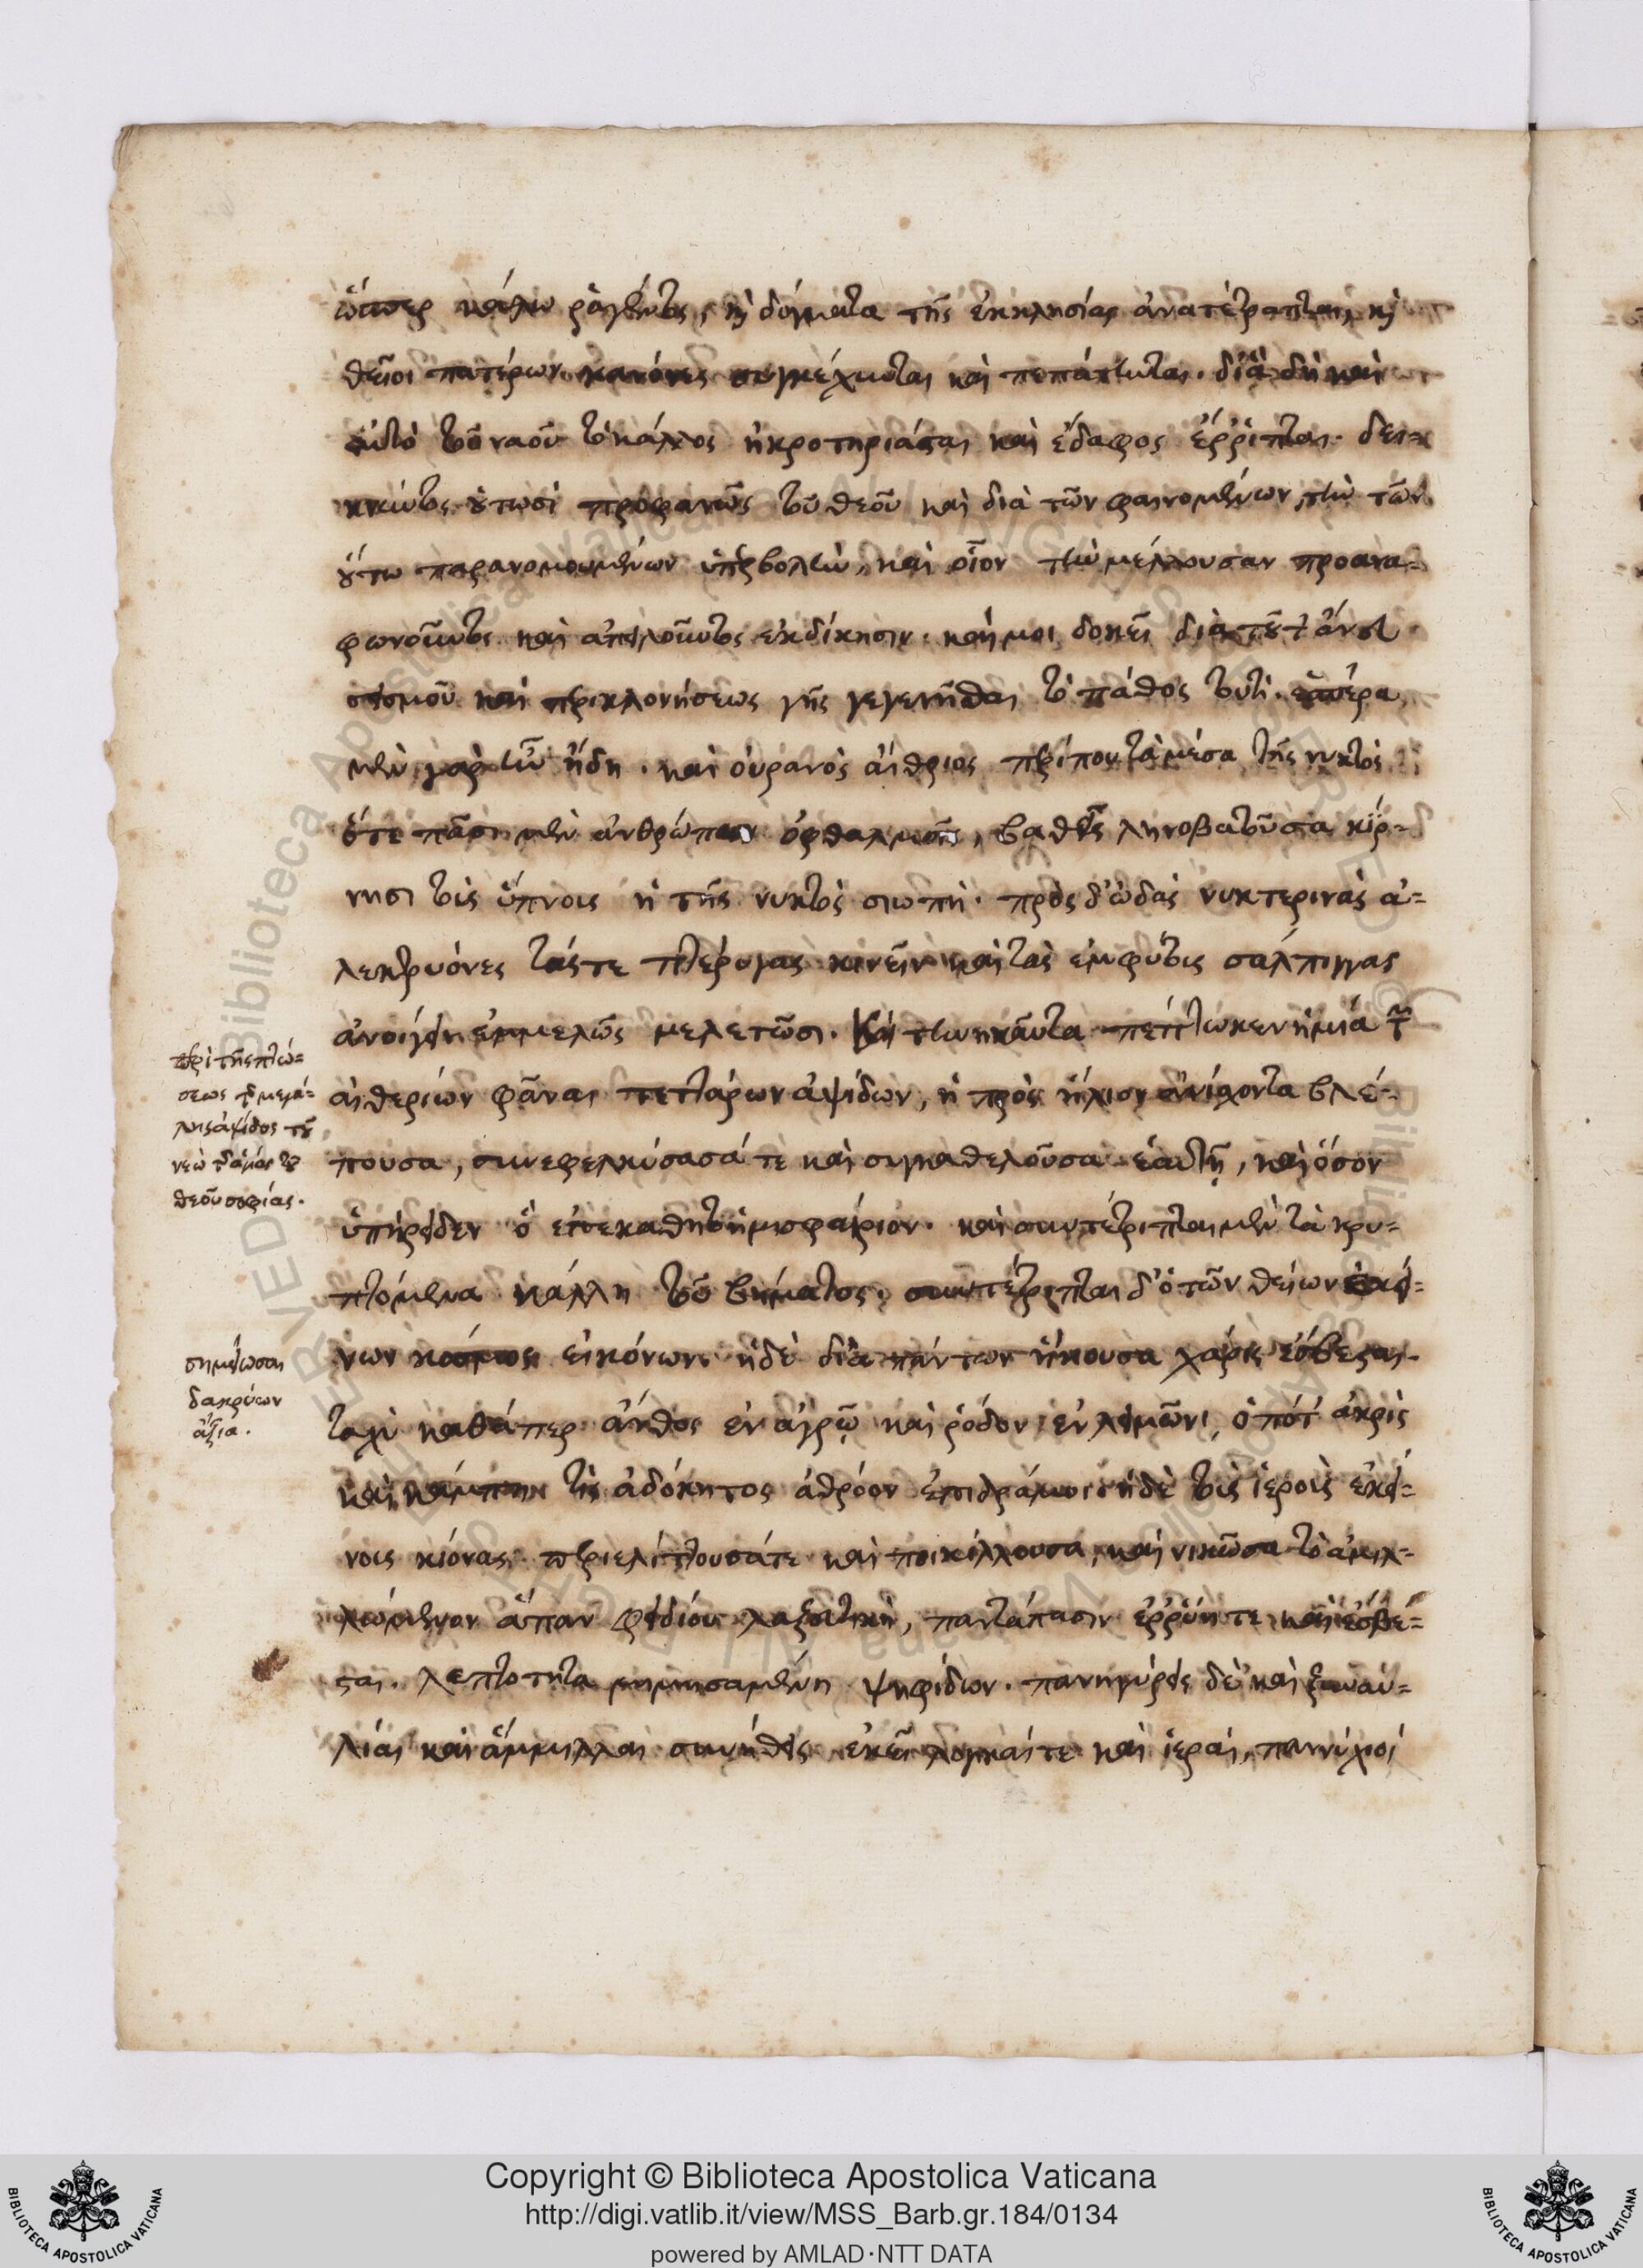 ὥσπερ κάλω ῥαγέντος, καὶ δόγματα τῆς ἐκκλησίας ἀνατέτραπται, καὶ
θεῖοι πατέρων κανόνες συγκέχυνται καὶ πεπάτηνται. διὰ δὴ καὶ
αὐτὸ τοῦ ναοῦ τὸ κάλλος ἠκροτηρίασται καὶ ἔδαφος ἔρριπται. δει-
κνύντος οὑτωσὶ προφανῶς τοῦ θεοῦ καὶ διὰ τῶν φαινομένων, τὴν τῶν
οὕτω παρανομουμένων ὑπερβολὴν, καὶ οἷον τὴν μέλλουσαν προανα-
φωνοῦντος καὶ ἀπειλοῦντος ἐκδίκησιν. καί μοι δοκεῖ διὰ τοῦτ' ἄνευ
σεισμοῦ καὶ περικλονήσεως γῆς γεγενῆσθαι τὸ πάθος τουτί. ἑσπέρα
μὲν γὰρ ἦν ἤδη. καὶ οὐρανὸς αἴθριος περί που τὰ μέσα τῆς νυκτὸς
ὅτε πᾶσι μὲν ἀνθρώπων ὀφθαλμοῖς, βαθεῖς ληνοβατοῦσα κίρ-
νησι τοὺς ὕπνους ἡ τῆς νυκτὸς σιωπή. πρὸς δ' ᾠδὰς νυκτερινὰς ἀ-
λεκτρυόνες τάς τε πτέρυγας κινεῖν καὶ τὰς ἐμφύτους σάλπιγγας
ἀνοίγειν ἐμμελῶς μελετῶσι. Καὶ τηνικαῦτα πέπτωκεν ἡ μία τῶν
αἰθερίων φᾶναι τεττάρων ἀψίδων, ἡ πρὸς ἥλιον ἀνίσχοντα βλέ-
πουσα, συνεφελκύσασά τε καὶ συγκαθελοῦσα ἑαυτῇ, καὶ ὅσον
ὑπήρειδεν ὃ ἐπεκάθητο ἡμισφαίριον. καὶ συντέτριπται μὲν τὰ κρυ-
πτόμενα κάλλη τοῦ βήματος. συντέτριπται δ' ὁ τῶν θείων ἐκεί-
νων κόσμος εἰκόνων. ἡ δὲ διὰ πάντων ἥκουσα χάρις ἔσβεσται
ταχὺ καθάπερ ἄνθος ἐν ἀγρῷ καὶ ῥόδον ἐν λειμῶνι, ὁπότ' ἀκρὶς
καὶ κάμπη τίς ἀδόκητος ἀθρόον ἐπιδράμοι. ἡ δὲ τοὺς ἱεροὺς ἐκεί-
νους κίονας περιελίττουσά τε καὶ ποικίλλουσα, καὶ νικῶσα τὸ ἁμιλ-
λώμενον ἅπαν φειδίου λαξευτικὴ, παντάπασιν ἐρρύη τε καὶ ἔσβε-
σται. λεπτότητα μιμησαμένη ψηφίδων. πανηγύρεις δὲ καὶ ξυναυ-
λίαι καὶ ἅμιλλαι συνήθεις ἐκεῖ λογικαί τε καὶ ἱεραί, παννύχιοί
περὶ τῆς πτώ-
σεως τῆς μεγά-
λης ἀψίδος τοῦ
νεὼ τῆς ἁγίας τοῦ
θεοῦ σοφίας.
σημείωσαι
δακρύων
ἄξια.
Copyright © Biblioteca Apostolica Vaticana
http://digi.vatlib.it/view/MSS_Barb.gr.184/0134
powered by AMLAD·NTT DATA
BIBLIOTECA APOSTOLICA VATICANA
BIBLIOTECA APOSTOLICA VATICANA